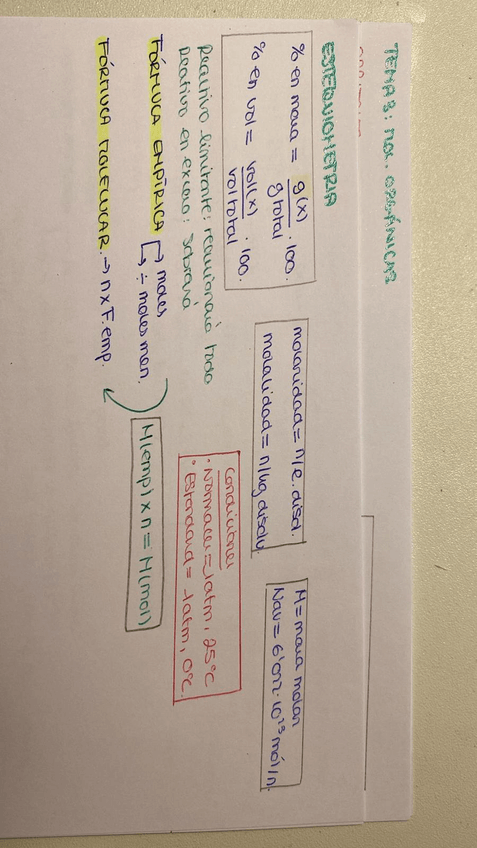 TEMA 3: MOL. ORGÁNICAS
ESTEQUIOMETRIA
% en masa = g(x) / g total · 100.
% en vol = vol(x) / vol total · 100.
molaridad = n/l. disol.
molalidad = n/kg disolv.
M = masa molar
Nav = 6'022 · 10²³ mol/n.
Reactivo limitante: reacciona todo
Reactivo en exceso: sobrará
Condiciones
· Normales = 1atm, 25°C
· Estandard = 1atm, 0°C.
FÓRMULA EMPÍRICA → moles
→ ÷ moles men.
FÓRMULA MOLECULAR. → n x F. emp.
M(emp) x n = M(mol)